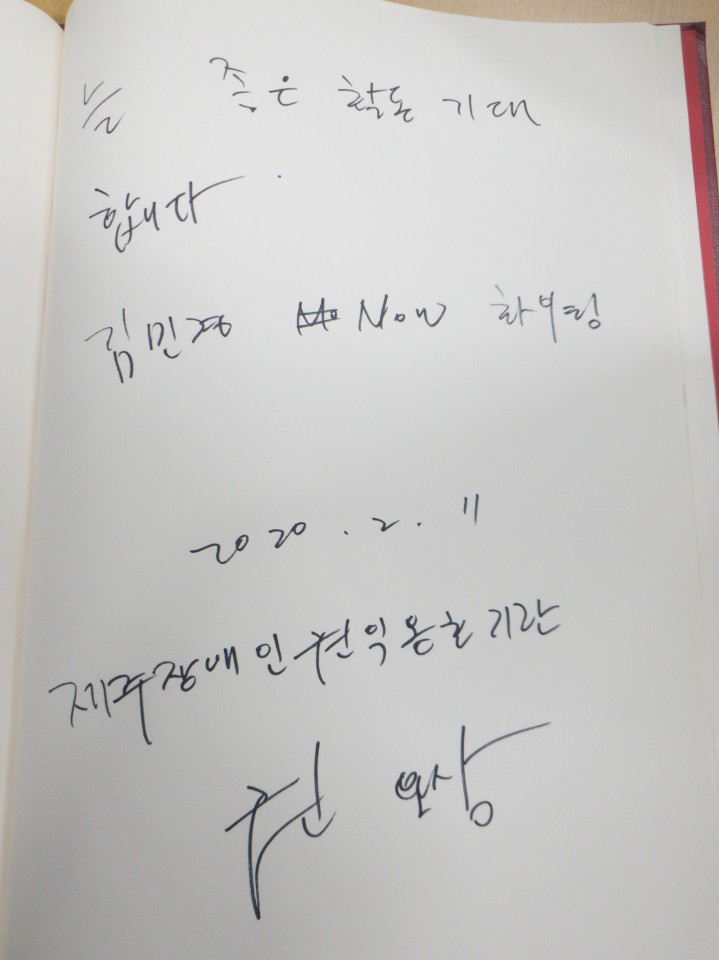 늘 좋은 활동 기대
합니다.
김민경 Now 화이팅
2020. 2. 11
제주장애인권익옹호기관
권 오상